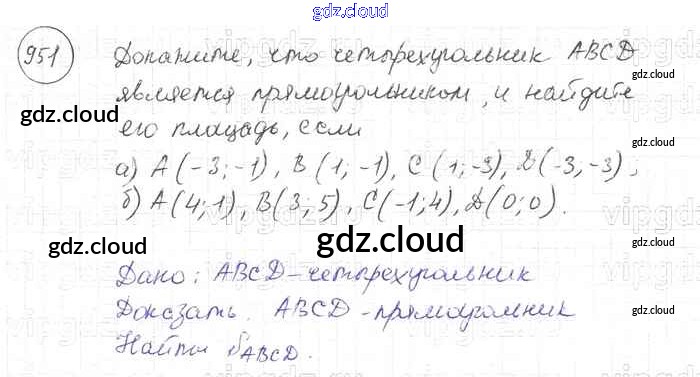 gdz.cloud
951
Докажите, что четырехугольник ABCD
является прямоугольником, и найдите
его площадь, если
а) A(-3;-1), B(1;-1), C(1;-3), D(-3,-3);
б) A(4;1), B(3;5), C(-1;4), D(0;0).
Дано: ABCD-четырехугольник
Доказать. ABCD-прямоугольник
Найти SABCD.
gdz.cloud
gdz.cloud
gdz.cloud
gdz.cloud
gdz.cloud
gdz.cloud
gdz.cloud